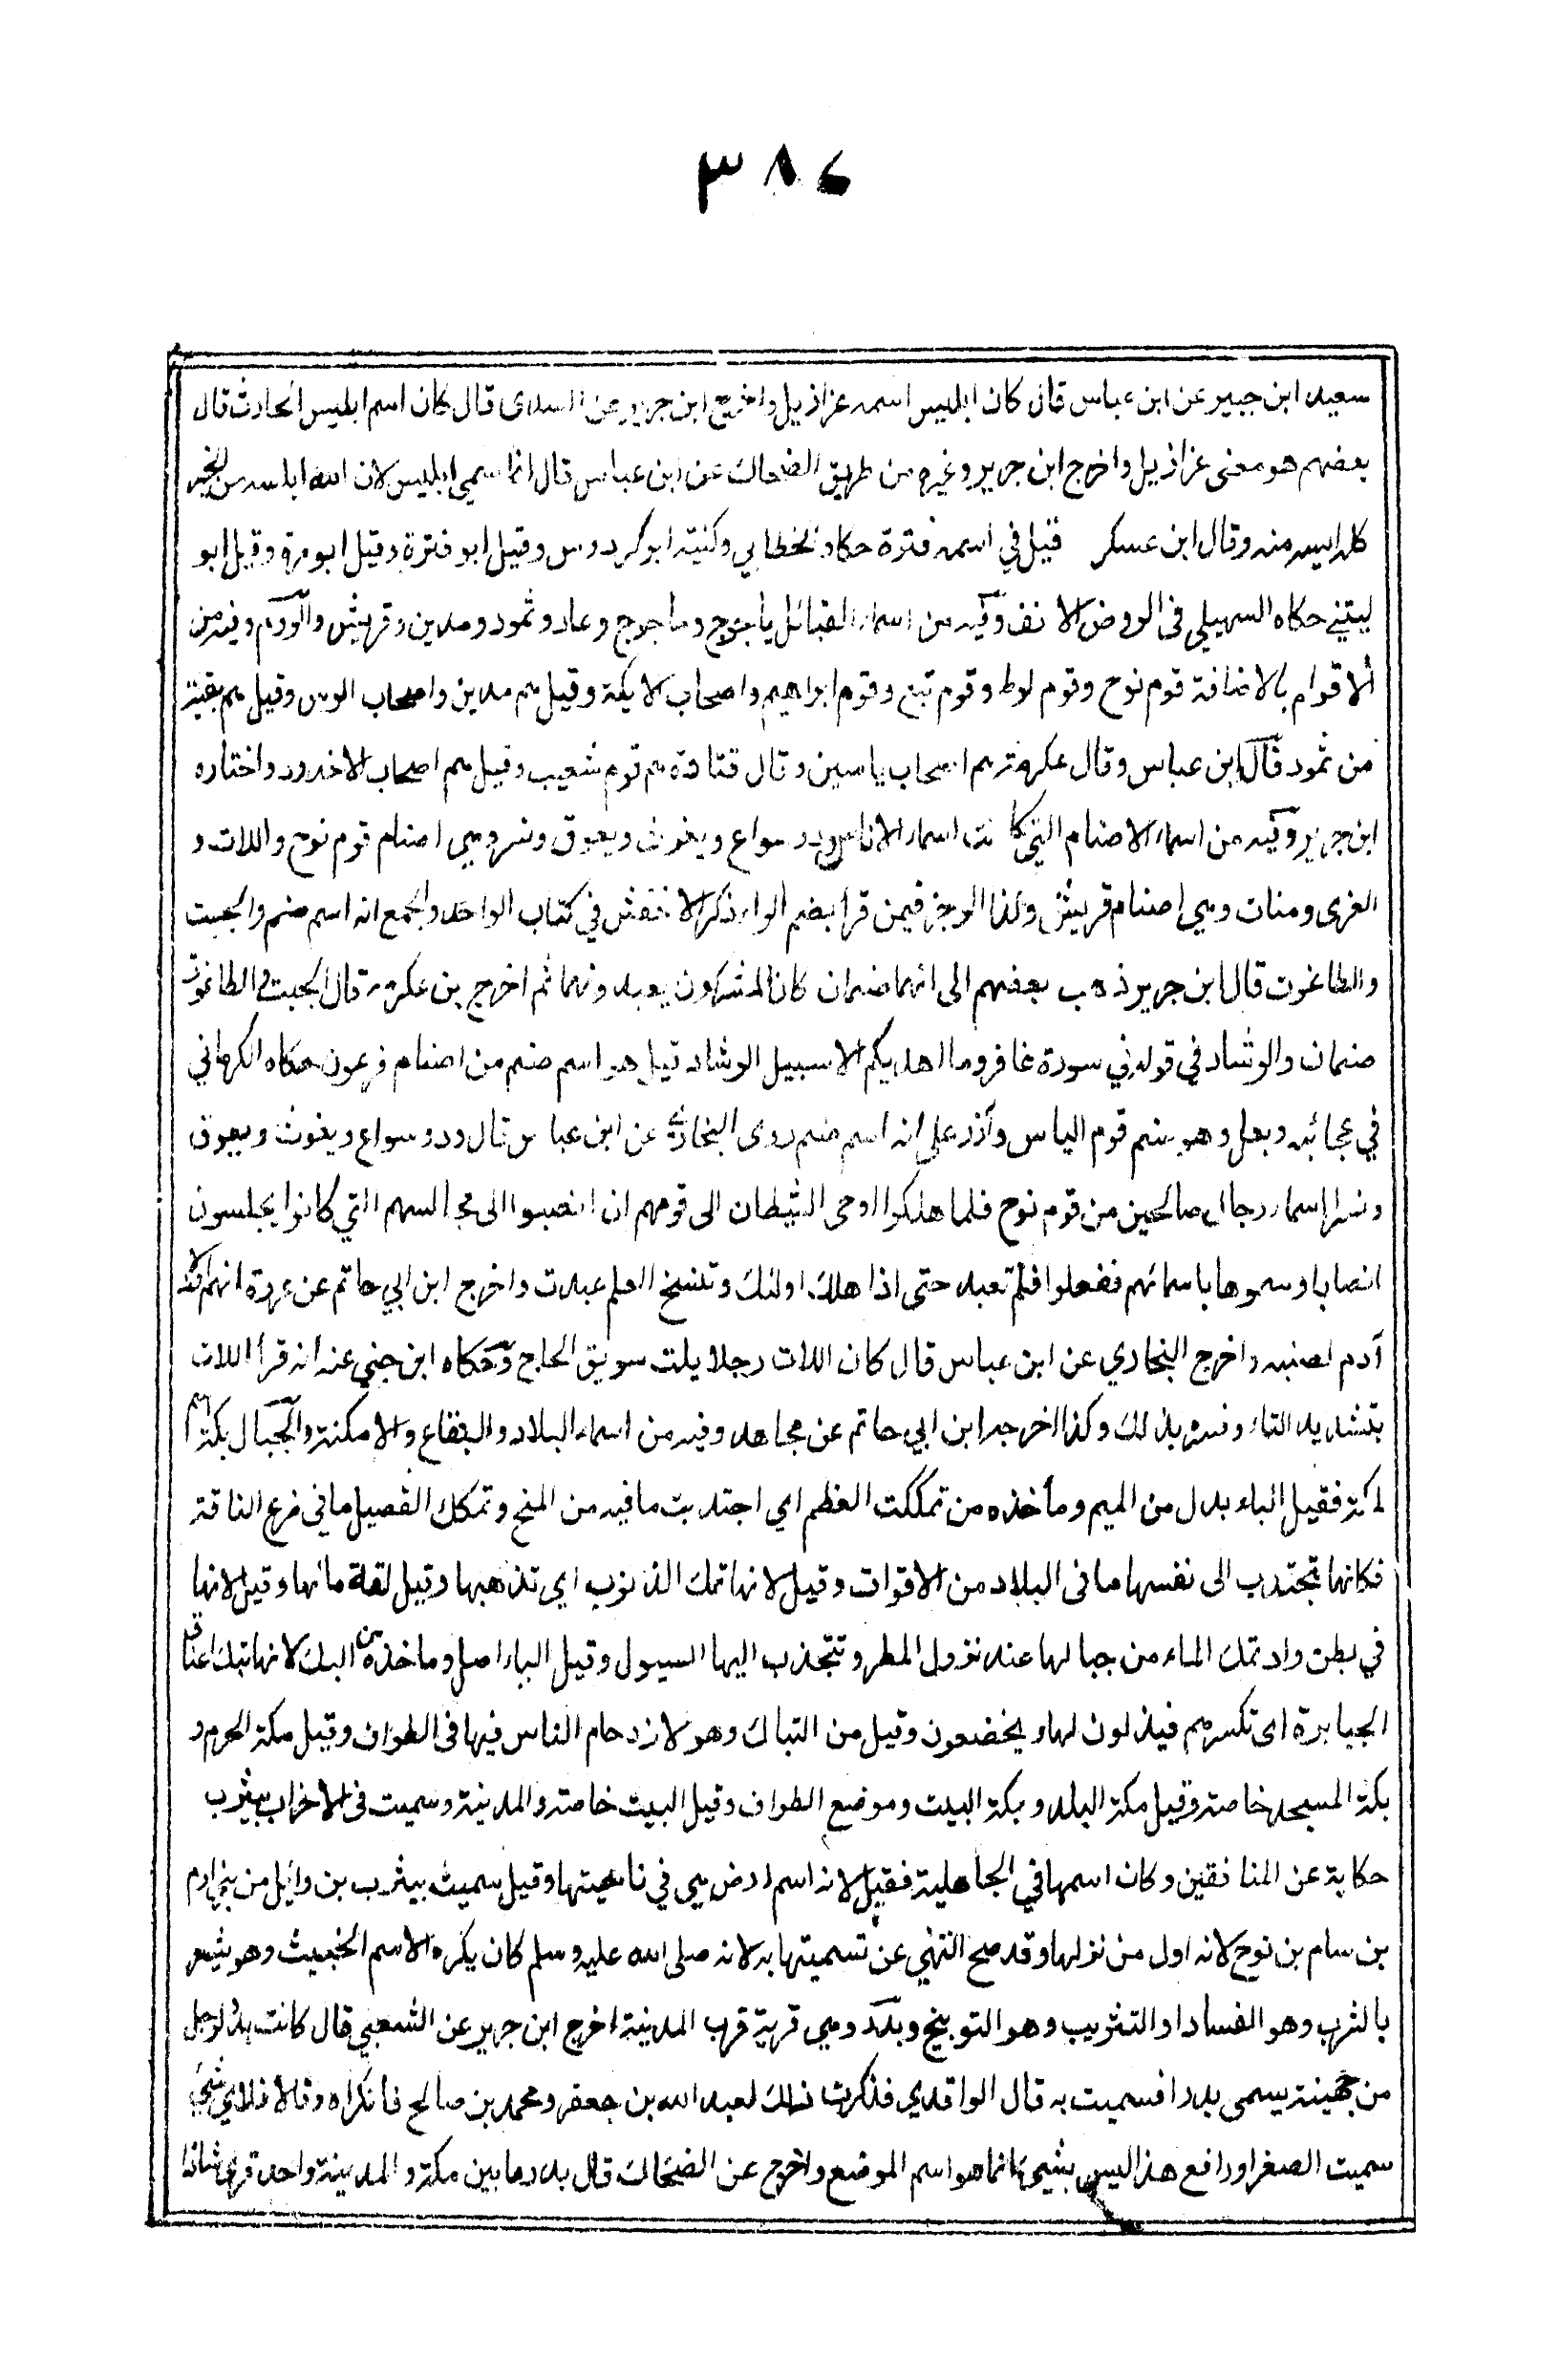 ٣٨٤
سعيد ابن جبير عن ابن عباس قال كان ابليس اسمه عزازيل واخرج ابن جرير عن السدى قال كان اسم ابليس الحارث قال
بعضهم هو معنى عزازيل واخرج ابن جرير وغيره من طريق الضحاك عن ابن عباس قال انما سمي ابليس لان الله ابلسه من الخير
كله ايسه منه وقال ابن عسكر قيل في اسمه فترة حكاه الخطابي وكنيته ابو كردوس وقيل ابو فترة وقيل ابو مرة وقيل ابو
لبيني حكاه السهيلي فى الروض الانف وفيه من اسماء القبائل ياجوج وماجوج وعاد وثمود ومدين وقريش والروم وفيه من
الاقوام بالاضافة قوم نوح وقوم لوط وقوم تبع وقوم ابراهيم واصحاب الايكة وقيل هم مدين واصحاب الرس وقيل هم بقية
من ثمود قال ابن عباس وقال عكرمة هم اصحاب ياسين وقال قتادة هم قوم شعيب وقيل هم اصحاب الاخدود واختاره
ابن جرير وفيه من اسماء الاصنام التي كانت اسماء الاناس ود وسواع ويغوث ويعوق ونسر وهي اصنام قوم نوح واللات و
العزى ومنات وهي اصنام قريش وكذا الرجز فيمن قرا بضم الراء ذكر الاخفش في كتاب الواحد والجمع انه اسم صنم والجبت
والطاغوت قال ابن جرير ذهب بعضهم الى انهما صنمان كان المشركون يعبدونهما ثم اخرج عن عكرمة قال الجبت والطاغوت
صنمان والرشاد في قوله في سورة غافر وما اهديكم الا سبيل الرشاد قيل هو اسم صنم من اصنام فرعون حكاه الكرماني
في عجائبه وبعل وهو صنم قوم الياس وآزر على انه اسم صنم روى البخاري عن ابن عباس قال ود وسواع ويغوث ويعوق
ونسر اسماء رجال صالحين من قوم نوح فلما هلكوا اوحى الشيطان الى قومهم ان انصبوا الى مجالسهم التي كانوا يجلسون
انصابا وسموها باسمائهم ففعلوا فلم تعبد حتى اذا هلك اولئك وتنسخ العلم عبدت واخرج ابن ابي حاتم عن عروة انهم اولاد
آدم لصلبه واخرج البخاري عن ابن عباس قال كان اللات رجلا يلت سويق الحاج وحكاه ابن جني عنه انه قرأ اللات
بتشديد التاء وفسره بذلك وكذا اخرجه ابن ابي حاتم عن مجاهد وفيه من اسماء البلاد والبقاع والامكنة والجبال بكة اسم
لمكة فقيل الباء بدل من الميم وماخذه من تمككت العظم اي اجتذبت ما فيه من المخ وتمكك الفصيل ما في ضرع الناقة
فكانها تجتذب الى نفسها ما فى البلاد من الاقوات وقيل لانها تمك الذنوب اي تذهبها وقيل لقلة مائها وقيل لانها
في بطن واد تمك الماء من جبالها عند نزول المطر وتنجذب اليها السيول وقيل الباء اصل وماخذه من البك لانها تبك اعناق
الجبابرة اى تكسرهم فيذلون لها ويخضعون وقيل من التباك وهو لازدحام الناس فيها فى الطواف وقيل مكة الحرم و
بكة المسجد خاصة وقيل مكة البلد وبكة البيت وموضع الطواف وقيل البيت خاصة والمدينة وسميت فى الاحزاب بيثرب
حكاية عن المنافقين وكان اسمها في الجاهلية فقيل لانه اسم ارض هي في ناحيتها وقيل سميت بيثرب بن وائل من بني ارم
بن سام بن نوح لانه اول من نزلها وقد صح النهي عن تسميتها به لانه صلى الله عليه وسلم كان يكره الاسم الخبيث وهو يشعر
بالثرب وهو الفساد او التثريب وهو التوبيخ وبدر وهي قرية قرب المدينة اخرج ابن جرير عن الشعبي قال كانت بدر لرجل
من جهينة يسمى بدرا فسميت به قال الواقدي فذكرت ذلك لعبد الله بن جعفر ومحمد بن صالح فانكراه وقالا فلاي شئ
سميت الصفرا ورافع هذا ليس بشيء انما هو اسم الموضع واخرج عن الضحاك قال بدر ما بين مكة والمدينة واحد